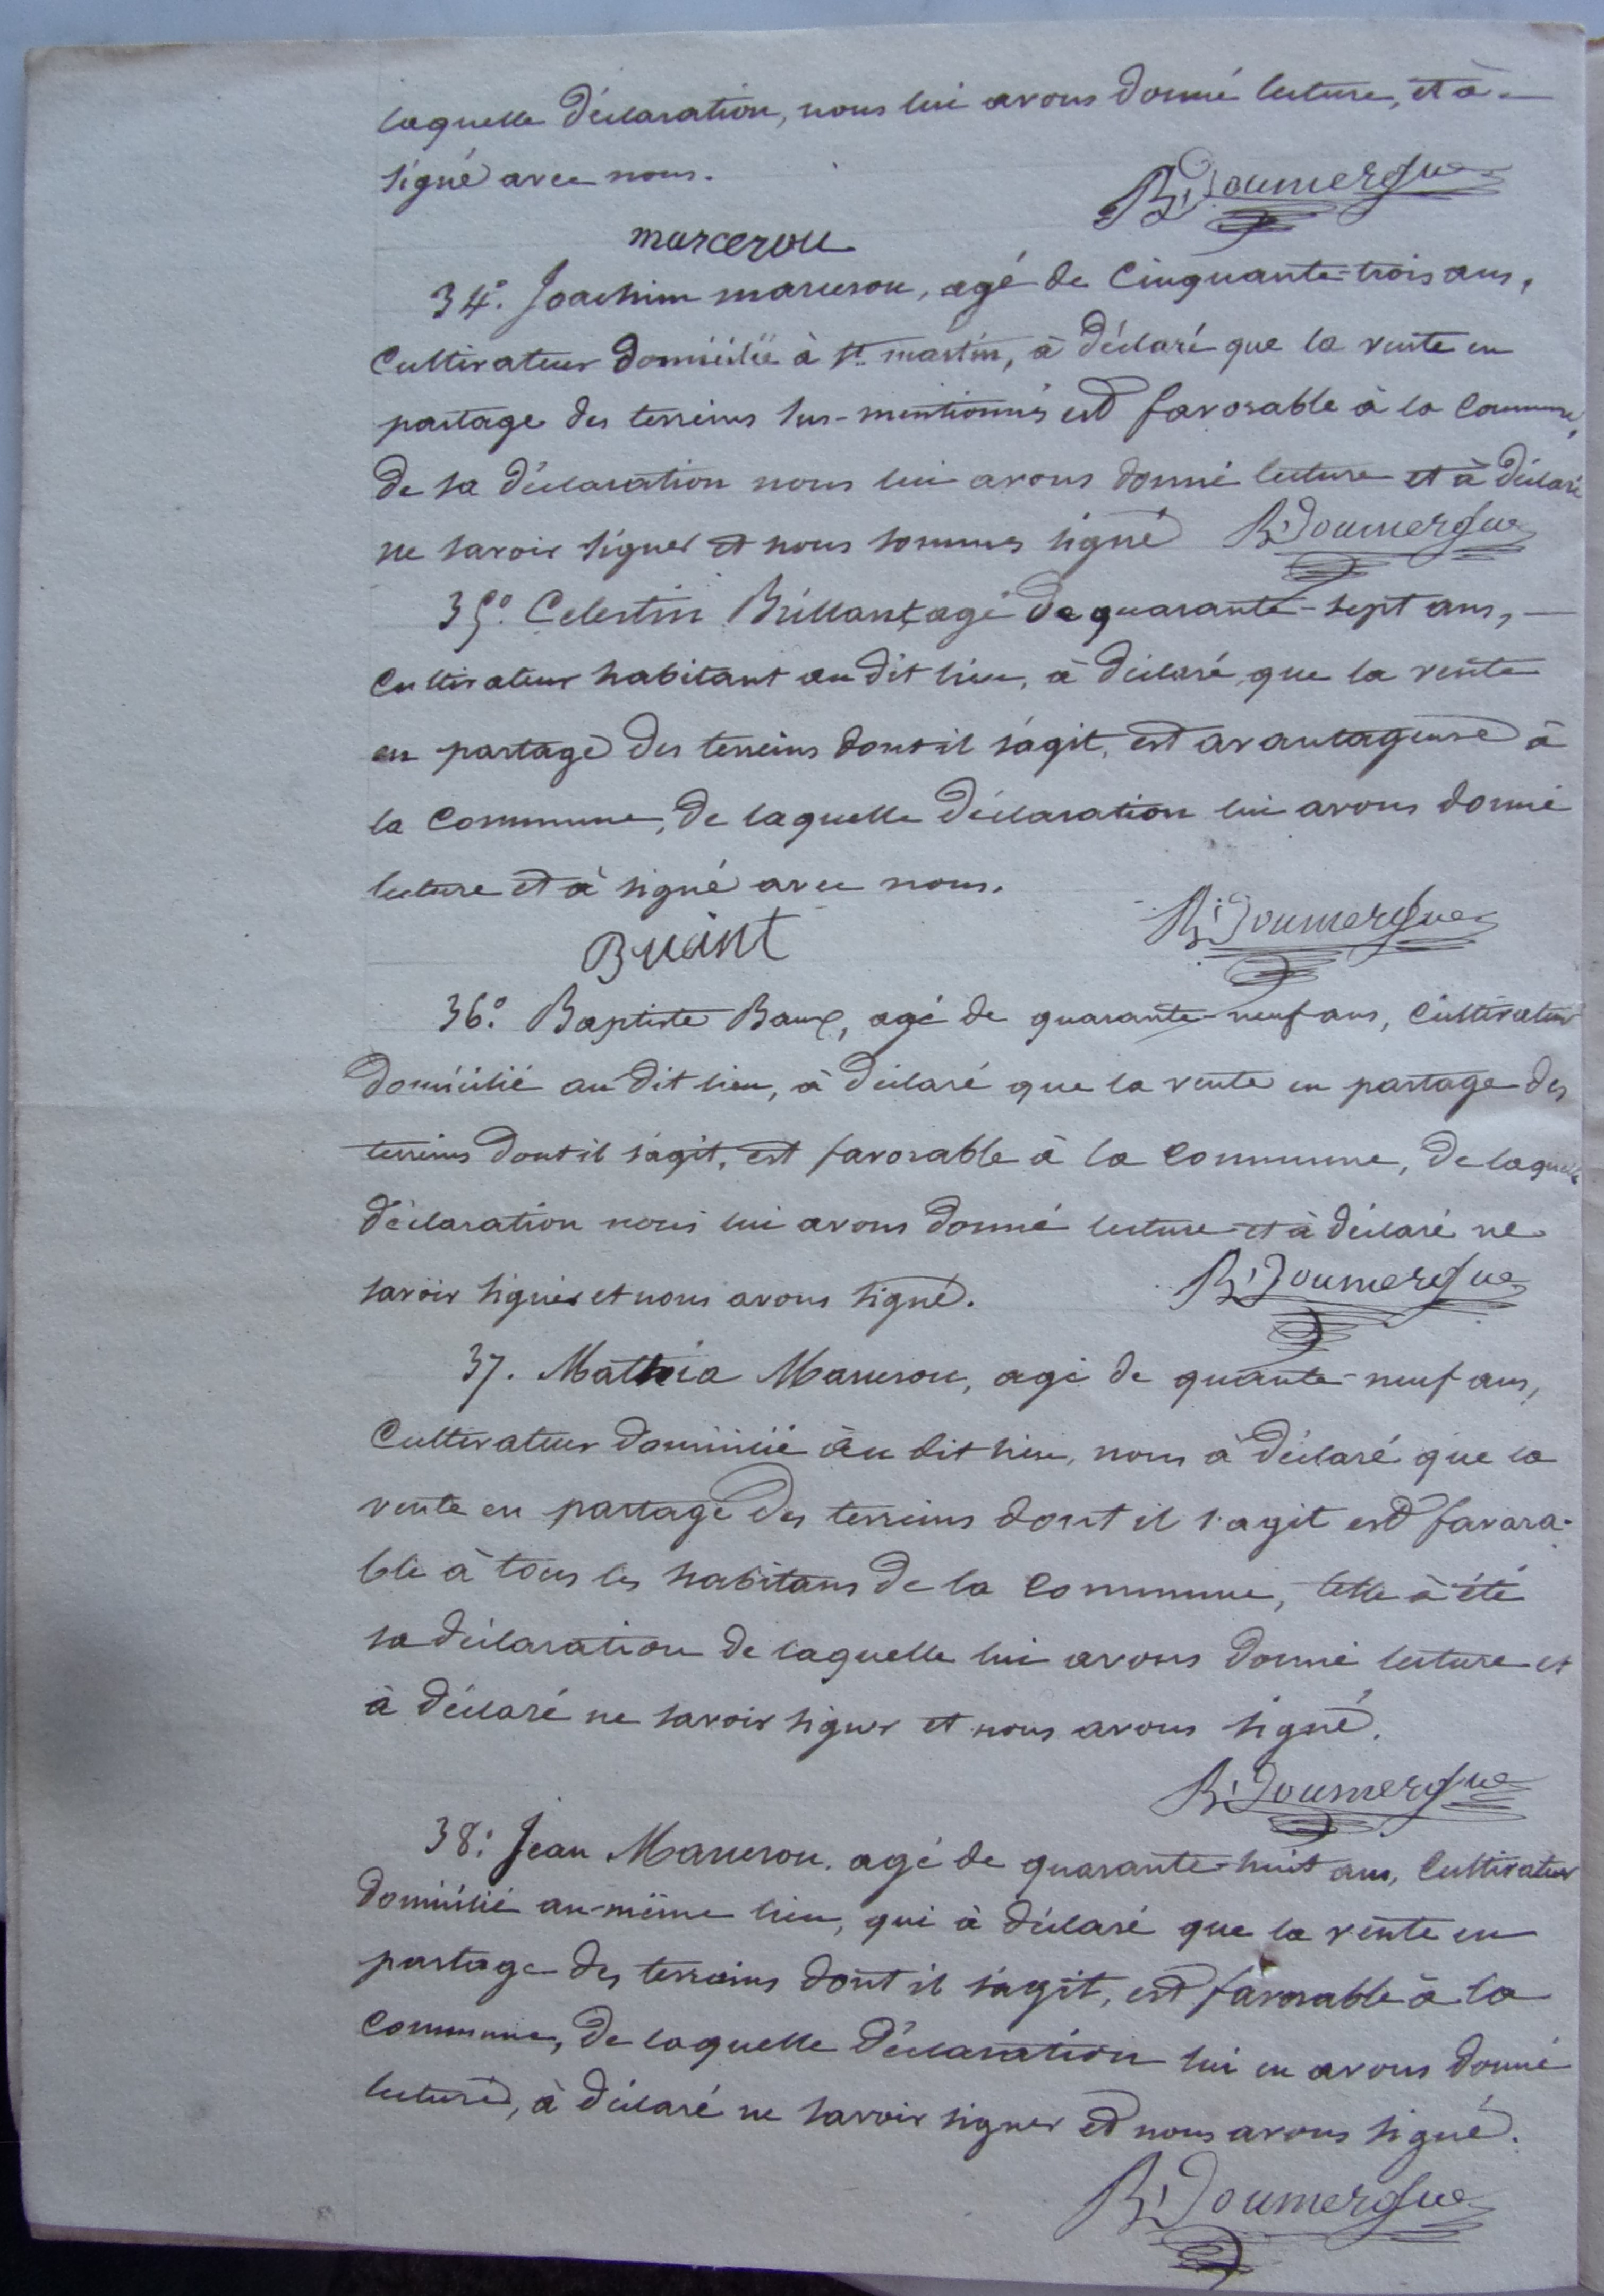 laquelle déclaration, nous lui avons donné lecture, et à
signé avec nous.
R. Doumergue
marcerou
34°. Joachim marcerou, agé de Cinquante-trois ans,
Cultivateur domicilié à St. martin, à déclaré que la vente en
partage des terreins sus-mentionnés est favorable à la Commune,
de sa déclaration nous lui avons donné lecture et à déclaré
ne savoir signer et nous sommes signé R. Doumergue
35°. Celestin Brillant, agé de quarante-sept ans,
Cultivateur habitant au dit lieu, à déclaré que la vente
en partage des terreins dont il s'agit, est avantageuse à
la Commune, de laquelle déclaration lui avons donné
lecture et à signé avec nous.
R. Doumergue
36°. Baptiste Baux, agé de quarante-neuf ans, Cultivateur
domicilié au dit lieu, à déclaré que la vente en partage des
terreins dont il s'agit, est favorable à la Commune, de laquelle
déclaration nous lui avons donné lecture et à déclaré ne
savoir signer et nous avons signé. R. Doumergue
37. Mathia Marcerou, agé de quarante-neuf ans,
Cultivateur domicilié au dit lieu, nous à déclaré que la
vente en partage des terreins dont il s'agit est favora-
ble à tous les habitans de la Commune, telle à été
sa déclaration de laquelle lui avons donné lecture et
à déclaré ne savoir signer et nous avons signé.
R. Doumergue
38°. Jean Marcerou, agé de quarante-huit ans, Cultivateur
domicilié au même lieu, qui à déclaré que la vente en
partage des terrains dont il s'agit, est favorable à la
Commune, de laquelle déclaration lui en avons donné
lecture, à déclaré ne savoir signer et nous avons signé.
R. Doumergue